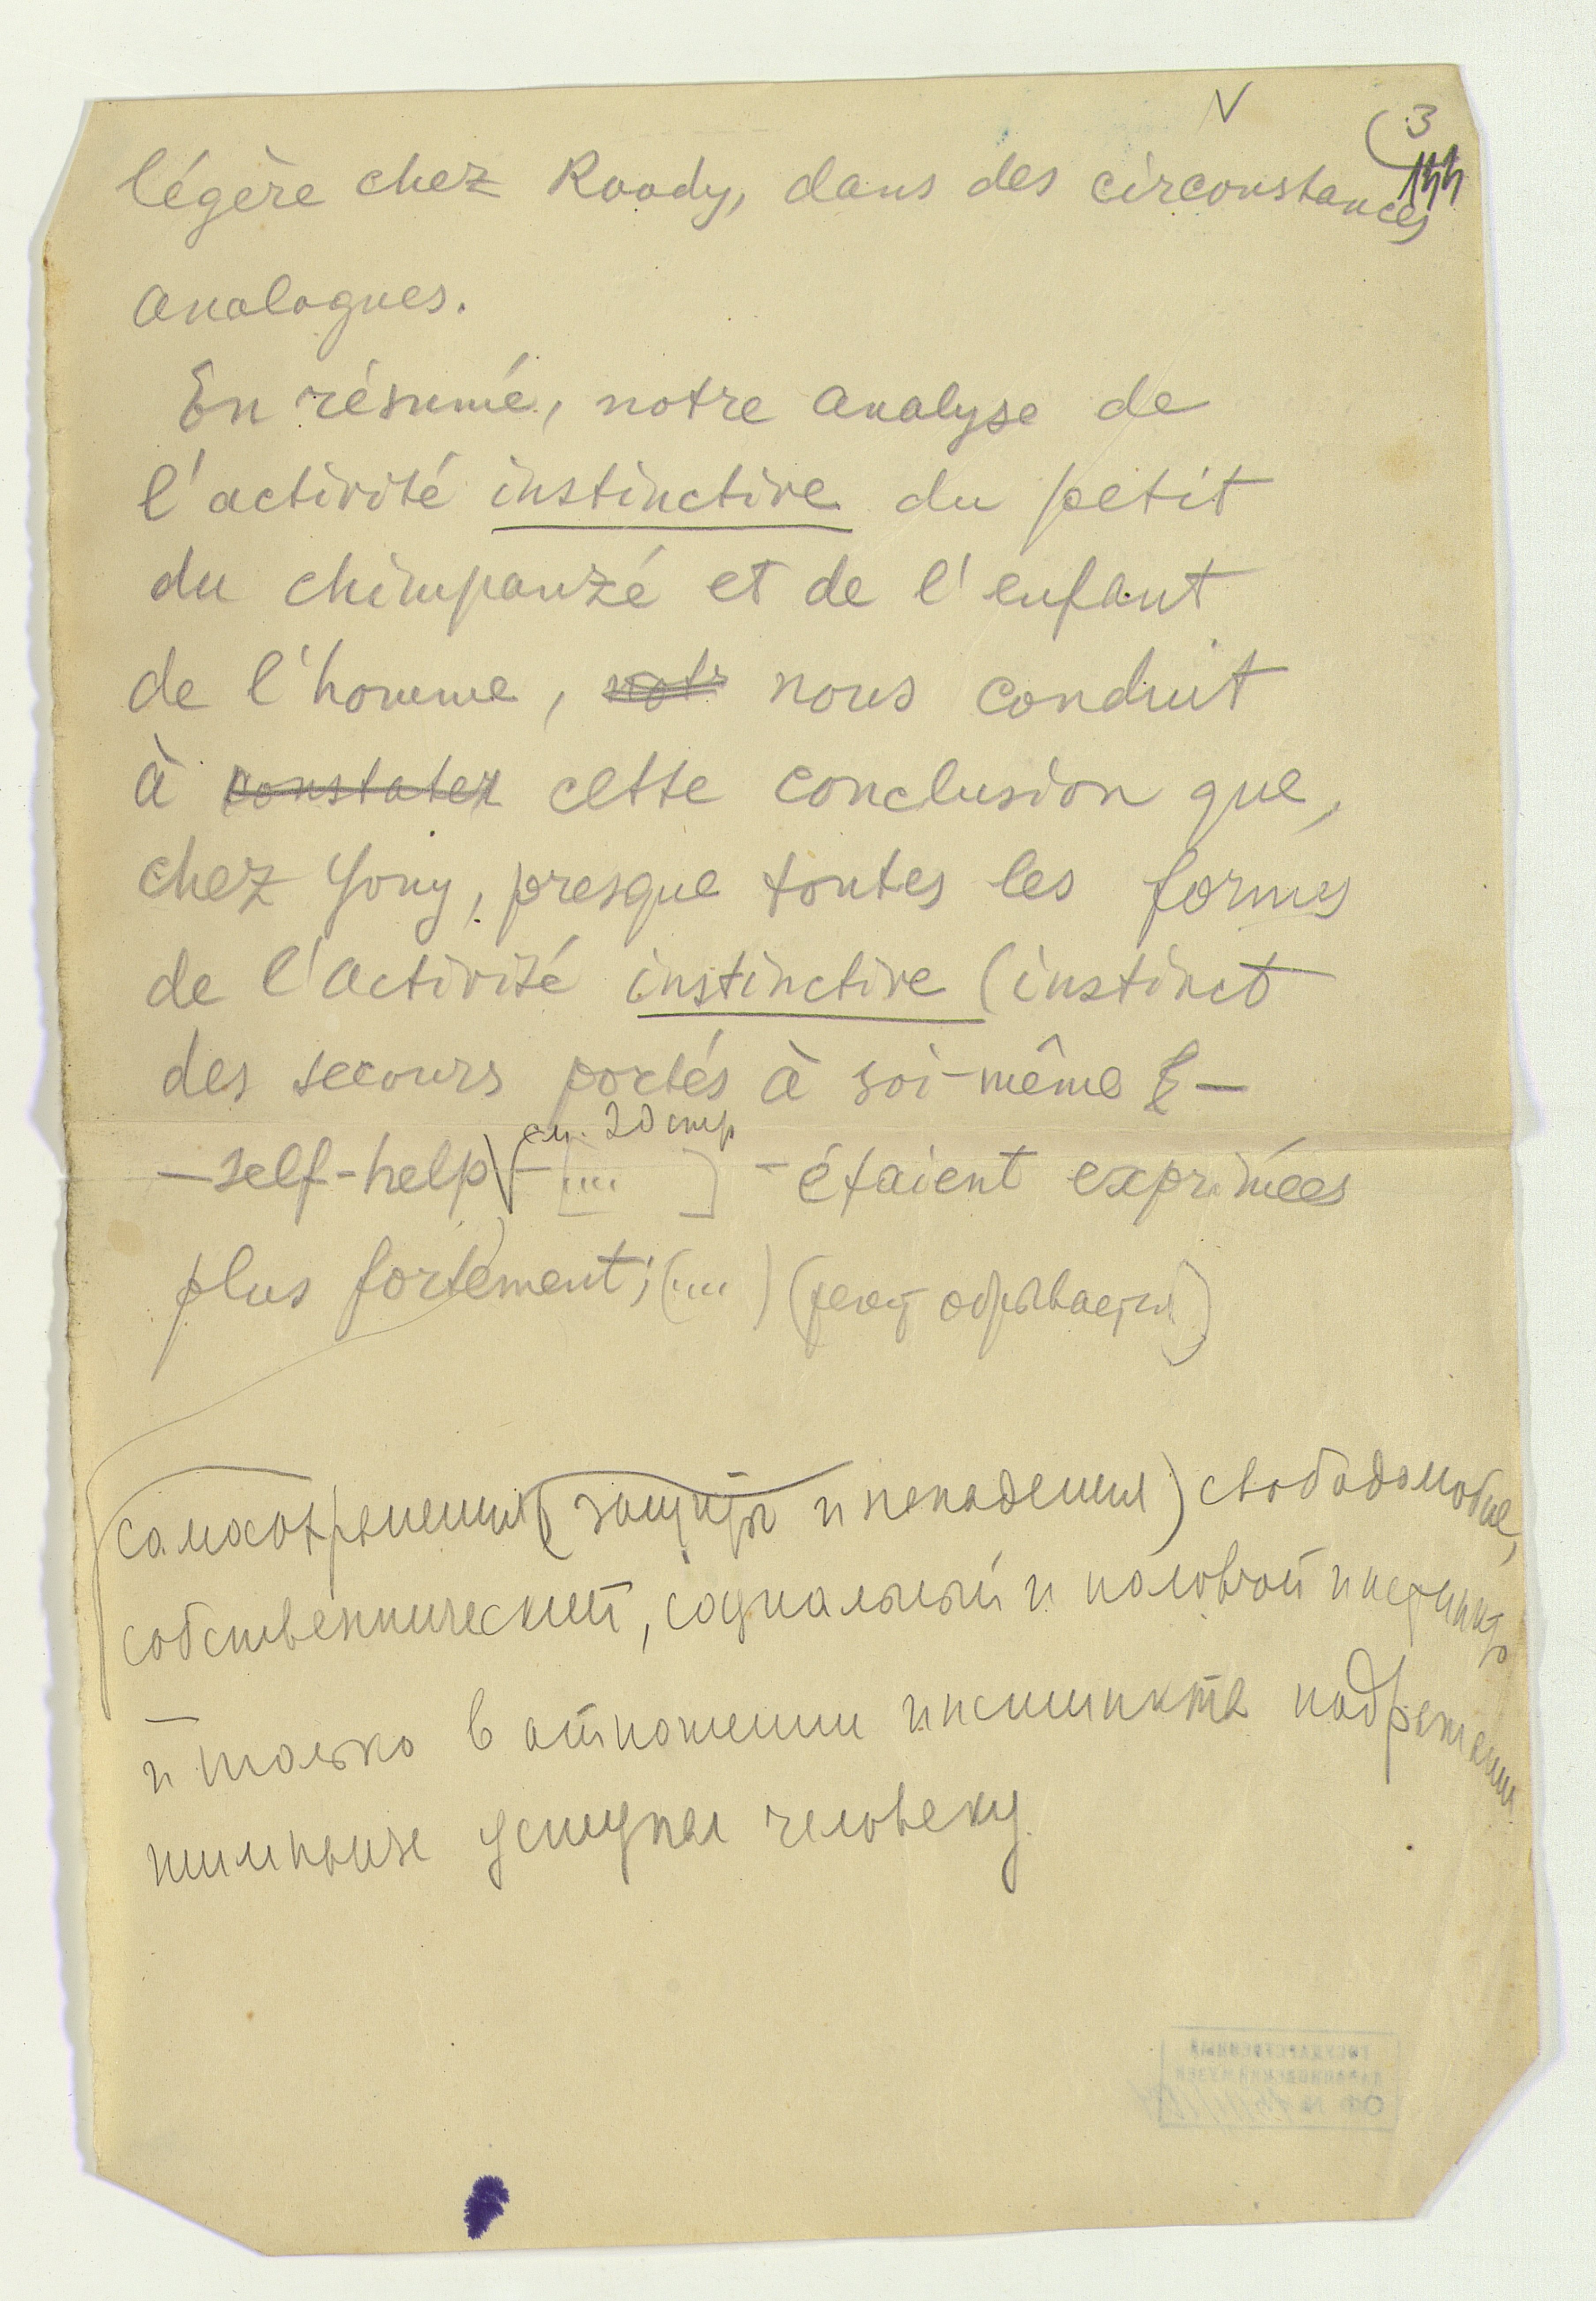 V
3
légère chez Roody, dans des circonstances
analogues.
En résumé, notre analyse de
l'activité instinctive du petit
du chimpanzé et de l'enfant
de l'homme, notr nous conduit
à constater cette conclusion que,
chez Yony, presque toutes les formes
de l'activité instinctive (instinct
des secours portés à soi-même –
– self-help – [.... ] – étaient exprimées
см. 20 стр
plus fortement; (....) (текст обрывается)
самосохранения (защиты и нападения) свободолюбие,
собственнический, социальный и половой инстинкты
и только в отношении инстинкта подражания
шимпанзе уступал человеку
ГОСУДАРСТВЕННЫЙ
ДАРВИНОВСКИЙ МУЗЕЙ
ОФ №